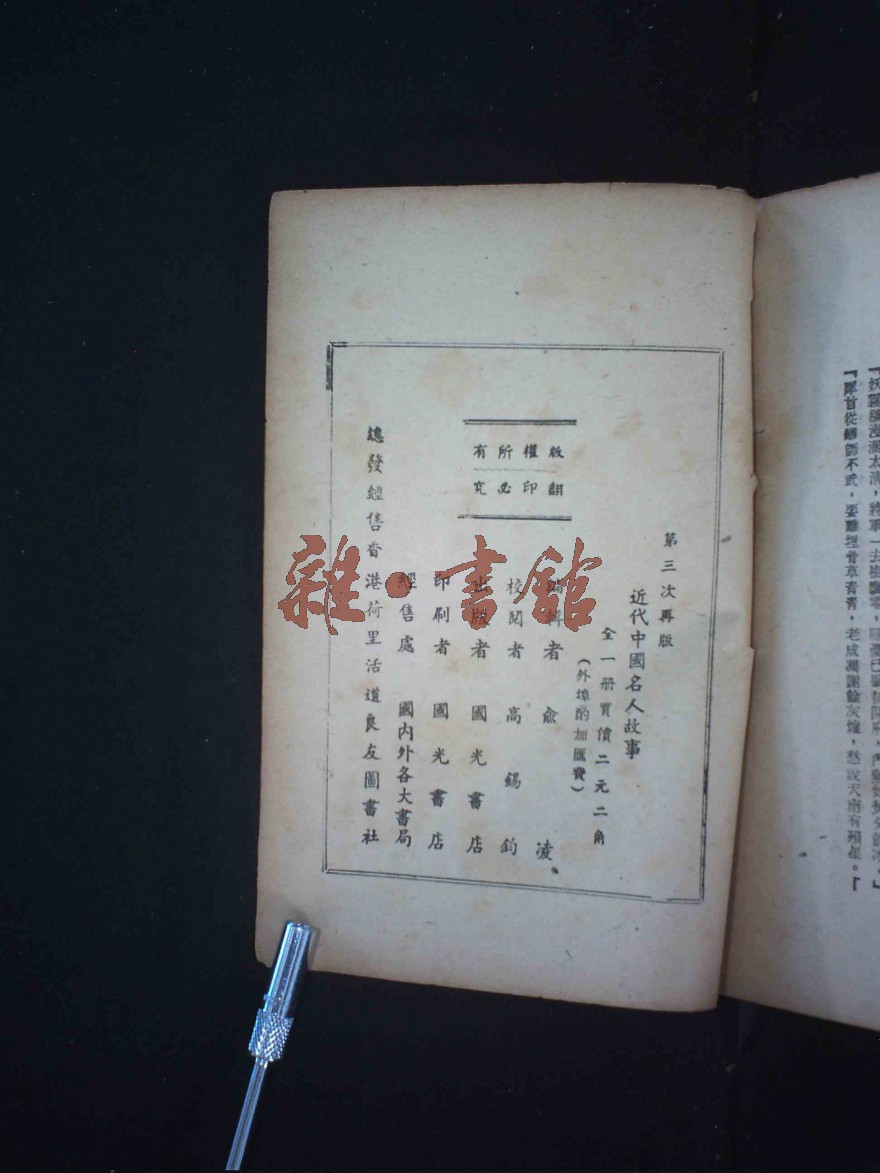 第三次再版
近代中國名人故事
全一册實價二元二角
(外埠酌加匯費)
編輯者 俞凌
校閱者 高錫鈞
出版者 國光書店
印刷者 國光書店
經售處 國內外各大書局
總發經售香港荷里活道良友圖書社
版權所有
翻印必究
雜·書館
太清,將軍一去
首從師不武,要離埋骨草青青,老成凋謝餘灰燼,愁說天南有殞星。』